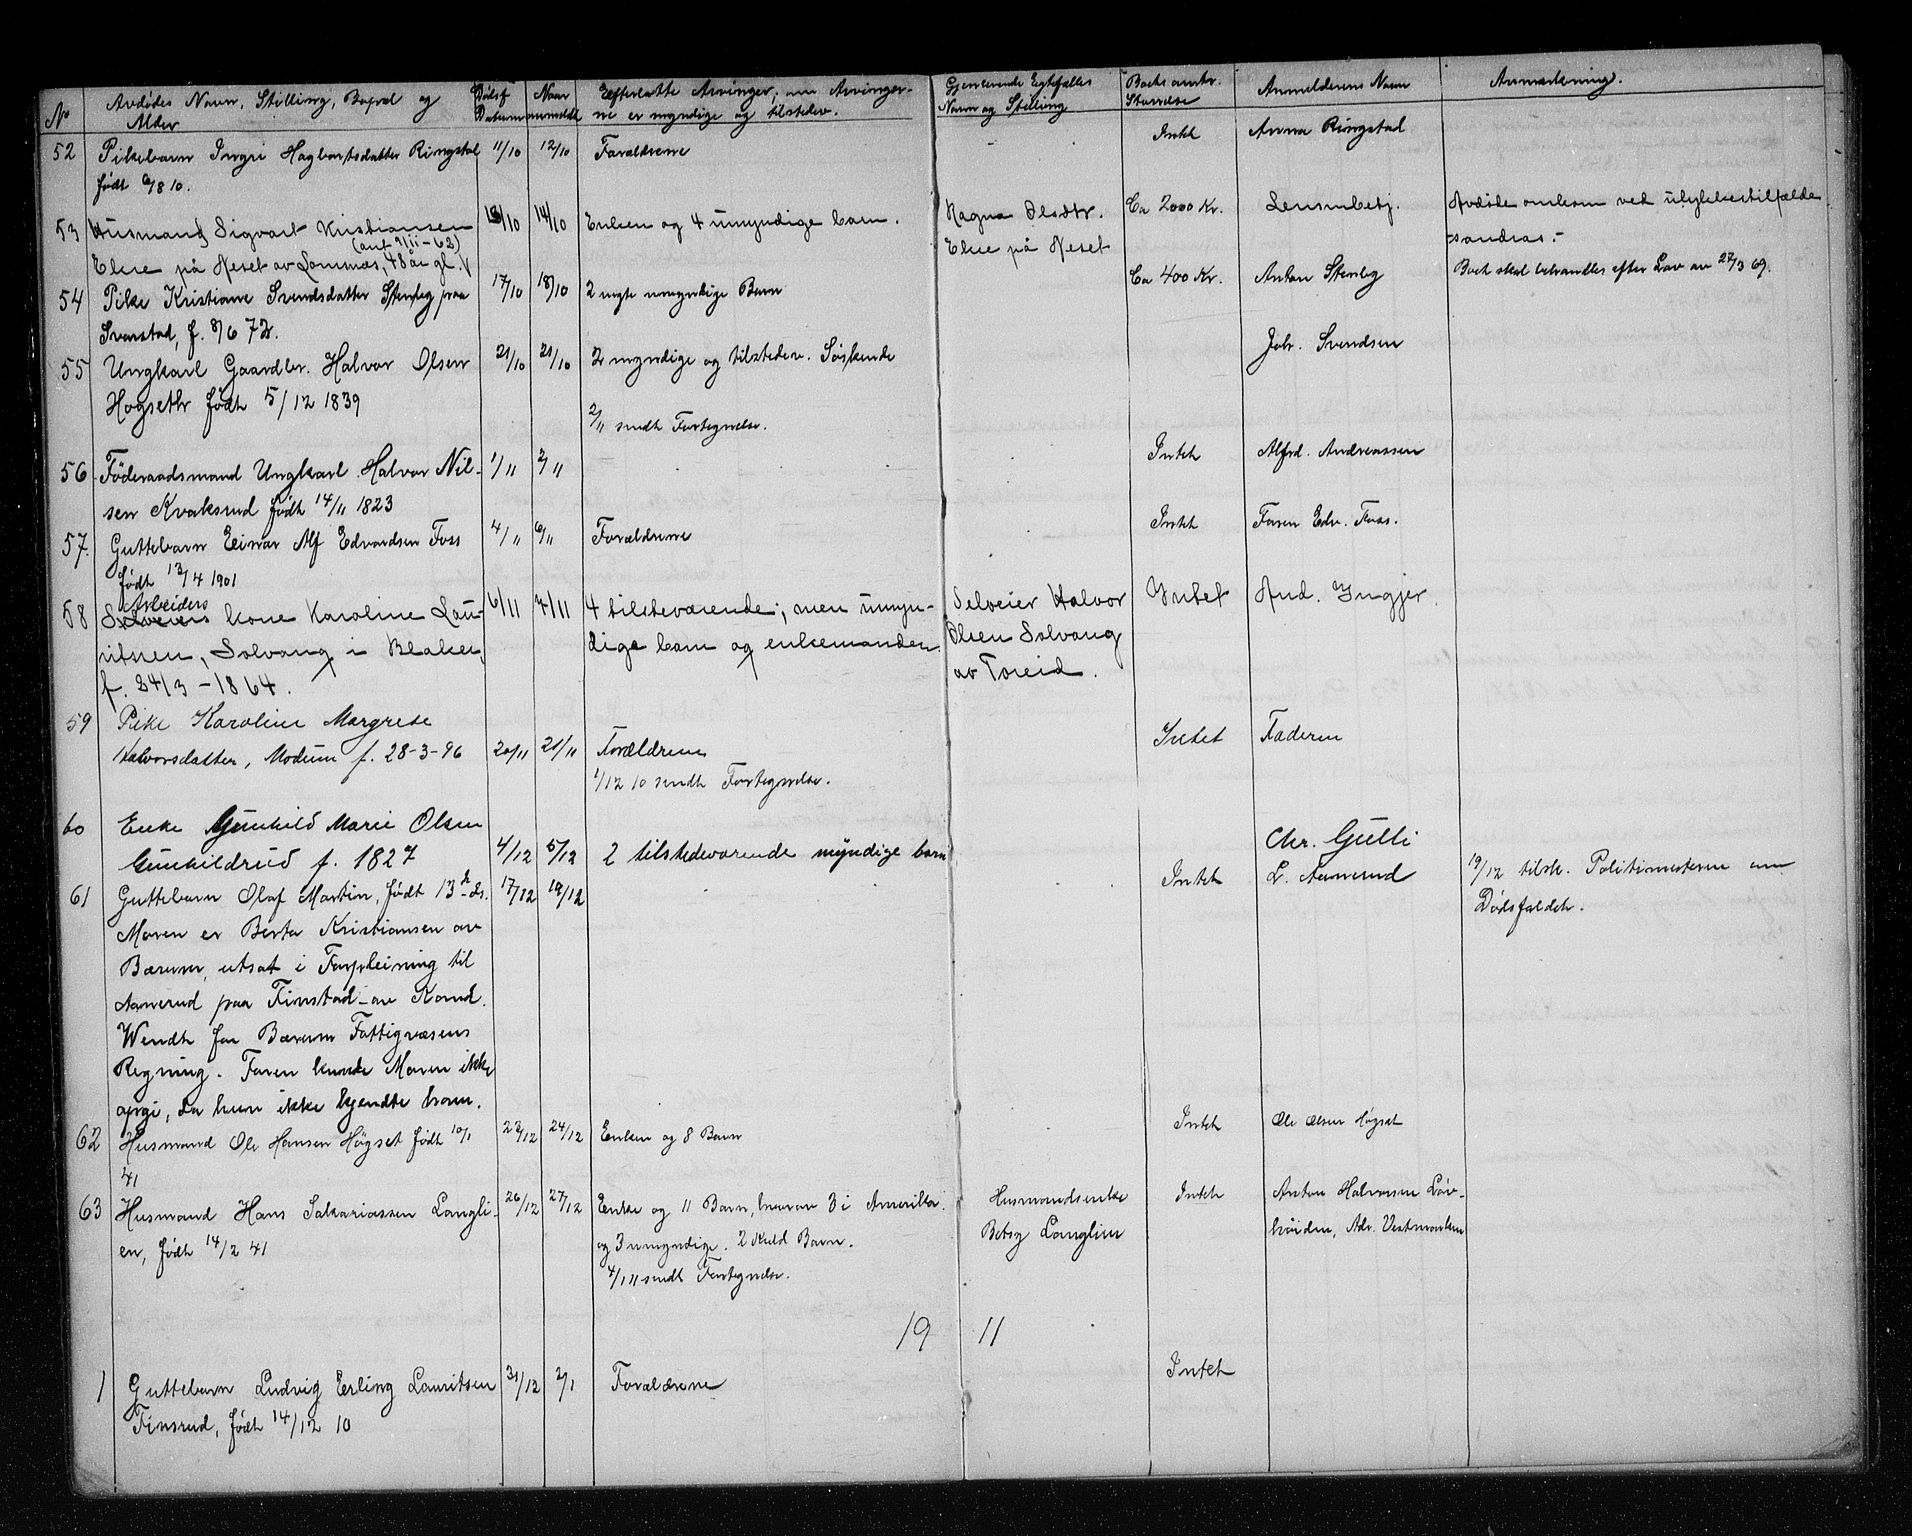 No Avdödes Navn, Stilling, Bopæl og Alder
Dödsf. Datum
Naar anmeldt
Efterlatte Arvinger, om Arvingerne er myndige og tilstedev.
Gjenlevende Egtefælles Navn og Stilling
Boets omtr. Störrelse
Anmelderens Navn
Anmærkning.
52 Pikebarn Ingri Hagbartsdatter Ringstad 11/10 12/10 Forældrene Intet Anna Ringstad
født 6/8 10.
53 Husmand Sigvart Kristiansen 13/10 14/10 Enken og 4 umyndige barn. Ragna Olsdtr. Ca 2000 Kr. Lensmbetj. Avdöde omkom ved ulykkestilfælde
(ant 7/11-62)
Elue på Neset av Sonnæs, 48 år gl. Elue på Neset -sandras.-
54 Pike Kristiane Svendsdatter Stenbg paa 17/10 18/10 2 uegte umyndige Barn Ca 400 Kr. Anton Stenbg Boet skal behandles efter Lov av 27/3 69.
Svarstad, f. 8/6 72.
55 Ungkarl Gaardbr. Halvor Olsen 21/10 21/10 2 myndige og tilstedev. Söskende Joh. Svendsen
Hogseth født 5/12 1839
2/11 sendt Fortegnelse.
56 Föderaadsmand Ungkarl Halvor Nil- 1/11 2/11 Intet Alfrd. Andreassen
sen Kvaksrud født 14/11 1823
57. Guttebarn Einar Alf Edvardsen Foss 4/11 6/11 Forældrene Intet Faren Edv. Foss.
født 13/4 1901
Arbeiders
58 Selveiers kone Karoline Lau- 6/11 7/11 4 tilsteværende, men umyn- Selveier Halvor Intet And. Ingjer.
ritsen, Solvang i Blaker, dige barn og enkemanden. Olsen Solvang
f. 24/3 - 1864. av Toreid.
59 Pike Karoline Margrete
Halvorsdatter, Modum f. 28-3-96 20/11 21/11 Forældrene Intet Faderen
1/12 10 sendt Fortegnelse.
60 Enke Gunhild Marie Olsen
Gunhildrud f. 1827 4/12 5/12 2 tilstedeværende myndige barn Chr. Gulli
61 Guttebarn Olaf Martin, født 13de ds. 17/12 19/12 Intet L. Aamerud 19/12 tilsk. Politimesteren om
Moren er Berta Kristiansen av Dödsfaldet.
Bærum, utsat i Forpleining til
Aamerud paa Finstad av Komd.
Wendt for Bærum Fattigvæsens
Regning. Faren kunde Moren ikke
opgi, da hun ikke kjendte ham.
62 Husmand Ole Hansen Högset født 10/1 23/12 24/12 Enken og 8 Barn Intet Ole Olsen Högset
41
63 Husmand Hans Sakariassen Langli- 26/12 27/12 Enke og 11 Barn, hvorav 3 i Amerika. Husmandsenke Intet Anton Halvorsen Löv-
en, født 14/2 41 og 3 umyndige. 2 Kuld Barn. Betsy Langlien höiden, Adr. Vestmarken
4/1 11 sendt Fortegnelse.
19 11
1 Guttebarn Ludvig Erling Lauritsen 31/12 2/1 Forældrene Intet
Finsrud, født 14/12 10